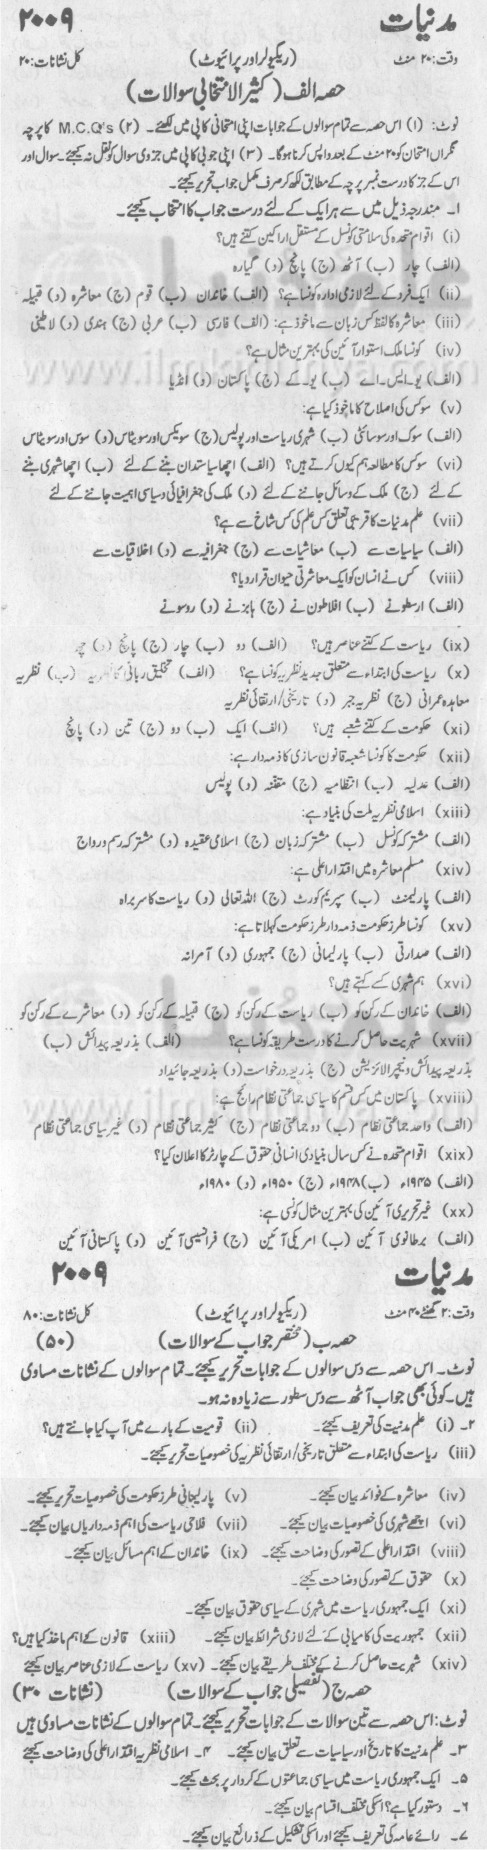 مدنیات ۲۰۰۹
وقت: ۲۰ منٹ (ریگولر اور پرائیوٹ) کل نشانات: ۲۰
حصہ الف (کثیر الانتخابی سوالات)
نوٹ: (۱) اس حصہ سے تمام سوالوں کے جوابات اپنی امتحانی کاپی میں لکھئے۔ (۲) M.C.Q's کا پرچہ
نگراں امتحان کو ۲۰ منٹ کے بعد واپس کرنا ہوگا۔ (۳) اپنی جوابی کاپی میں جزوی سوال کو نقل نہ کیجئے۔ سوال اور
اس کے جز کا درست نمبر پرچہ کے مطابق لکھ کر صرف مکمل جواب تحریر کیجئے۔
۱۔ مندرجہ ذیل میں سے ہر ایک کے لئے درست جواب کا انتخاب کیجئے۔
(i) اقوام متحدہ کی سلامتی کونسل کے مستقل اراکین کتنے ہیں؟
(الف) چار (ب) آٹھ (ج) پانچ (د) گیارہ
(ii) ایک فرد کے لئے لازمی ادارہ کونسا ہے؟ (الف) خاندان (ب) قوم (ج) معاشرہ (د) قبیلہ
(iii) معاشرہ کا لفظ کس زبان سے ماخوذ ہے: (الف) فارسی (ب) عربی (ج) ہندی (د) لاطینی
(iv) کونسا ملک استوار آئین کی بہترین مثال ہے؟
(الف) یو۔ایس۔اے (ب) یو۔کے (ج) پاکستان (د) انڈیا
(v) سوکس کی اصلاح کا ماخوذ کیا ہے:
(الف) سوک اور سوسائٹی (ب) شہری ریاست اور پولیس (ج) سویکس اور سویٹاس (د) سوس اور سویٹاس
(vi) سوکس کا مطالعہ ہم کیوں کرتے ہیں؟ (الف) اچھا سیاستدان بننے کے لئے (ب) اچھا شہری بننے
کے لئے (ج) ملک کے وسائل جاننے کے لئے (د) ملک کی جغرافیائی و سیاسی اہمیت جاننے کے لئے
(vii) علم مدنیات کا قریبی تعلق کس علم کی کس شاخ سے ہے؟
(الف) سیاسیات سے (ب) معاشیات سے (ج) جغرافیہ سے (د) اخلاقیات سے
(viii) کس نے انسان کو ایک معاشرتی حیوان قرار دیا؟
(الف) ارسطو نے (ب) افلاطون نے (ج) ہابز نے (د) روسو نے
(ix) ریاست کے کتنے عناصر ہیں؟ (الف) دو (ب) چار (ج) پانچ (د) چھ
(x) ریاست کی ابتداء سے متعلق جدید نظریہ کونسا ہے؟ (الف) تخلیق ربانی کا نظریہ (ب) نظریہ
معاہدہ عمرانی (ج) نظریہ جبر (د) تاریخی/ارتقائی نظریہ
(xi) حکومت کے کتنے شعبے ہیں؟ (الف) ایک (ب) دو (ج) تین (د) پانچ
(xii) حکومت کا کونسا شعبہ قانون سازی کا ذمہ دار ہے:
(الف) عدلیہ (ب) انتظامیہ (ج) مقننہ (د) پولیس
(xiii) اسلامی نظریہ ملت کی بنیاد ہے:
(الف) مشترکہ کونسل (ب) مشترکہ زبان (ج) اسلامی عقیدہ (د) مشترکہ رسم و رواج
(xiv) مسلم معاشرہ میں اقتدار اعلیٰ ہے:
(الف) پارلیمنٹ (ب) سپریم کورٹ (ج) اللہ تعالیٰ (د) ریاست کا سربراہ
(xv) کونسا طرز حکومت ذمہ دار طرز حکومت کہلاتا ہے:
(الف) صدارتی (ب) پارلیمانی (ج) جمہوری (د) آمرانہ
(xvi) ہم شہری کسے کہتے ہیں؟
(الف) خاندان کے رکن کو (ب) ریاست کے رکن کو (ج) قبیلہ کے رکن کو (د) معاشرے کے رکن کو
(xvii) شہریت حاصل کرنے کا درست طریقہ کونسا ہے؟ (الف) بذریعہ پیدائش (ب)
بذریعہ پیدائش و نیچرلائزیشن (ج) بذریعہ درخواست (د) بذریعہ جائیداد
(xviii) پاکستان میں کس قسم کا سیاسی جماعتی نظام رائج ہے:
(الف) واحد جماعتی نظام (ب) دو جماعتی نظام (ج) کثیر جماعتی نظام (د) غیر سیاسی جماعتی نظام
(xix) اقوام متحدہ نے کس سال بنیادی انسانی حقوق کے چارٹر کا اعلان کیا؟
(الف) ۱۹۴۵ء (ب) ۱۹۴۸ء (ج) ۱۹۵۰ء (د) ۱۹۸۰ء
(xx) غیر تحریری آئین کی بہترین مثال کونسی ہے:
(الف) برطانوی آئین (ب) امریکی آئین (ج) فرانسیسی آئین (د) پاکستانی آئین
مدنیات ۲۰۰۹
وقت: ۲ گھنٹے ۴۰ منٹ (ریگولر اور پرائیوٹ) کل نشانات: ۸۰
حصہ ب (مختصر جواب کے سوالات) (۵۰)
نوٹ۔ اس حصہ سے دس سوالوں کے جوابات تحریر کیجئے۔ تمام سوالوں کے نشانات مساوی
ہیں۔ کوئی بھی جواب آٹھ سے دس سطور سے زیادہ نہ ہو۔
۲۔ (i) علم مدنیت کی تعریف کیجئے۔ (ii) قومیت کے بارے میں آپ کیا جانتے ہیں؟
(iii) ریاست کی ابتداء سے متعلق تاریخی/ارتقائی نظریہ کی خصوصیات تحریر کیجئے۔
(iv) معاشرہ کے فوائد بیان کیجئے۔ (v) پارلیمانی طرز حکومت کی خصوصیات تحریر کیجئے۔
(vi) اچھے شہری کی خصوصیات بیان کیجئے۔ (vii) فلاحی ریاست کی اہم ذمہ داریاں بیان کیجئے۔
(viii) اقتدار اعلیٰ کے تصور کی وضاحت کیجئے۔ (ix) خاندان کے اہم مسائل بیان کیجئے۔
(x) حقوق کے تصور کی وضاحت کیجئے۔
(xi) ایک جمہوری ریاست میں شہری کے سیاسی حقوق بیان کیجئے۔
(xii) جمہوریت کی کامیابی کے لئے لازمی شرائط بیان کیجئے۔ (xiii) قانون کے اہم ماخذ کیا ہیں؟
(xiv) شہریت حاصل کرنے کے مختلف طریقے بیان کیجئے۔ (xv) ریاست کے لازمی عناصر بیان کیجئے
حصہ ج (تفصیلی جواب کے سوالات) (نشانات ۳۰)
نوٹ: اس حصہ سے تین سوالات کے جوابات تحریر کیجئے۔ تمام سوالوں کے نشانات مساوی ہیں
۳۔ علم مدنیت کا تاریخ اور سیاسیات سے تعلق بیان کیجئے۔ ۴۔ اسلامی نظریہ اقتدار اعلیٰ کی وضاحت کیجئے
۵۔ ایک جمہوری ریاست میں سیاسی جماعتوں کے کردار پر بحث کیجئے۔
۶۔ دستور کیا ہے؟ اسکی مختلف اقسام بیان کیجئے۔
۷۔ رائے عامہ کی تعریف کیجئے اور اسکی تشکیل کے ذرائع بیان کیجئے۔